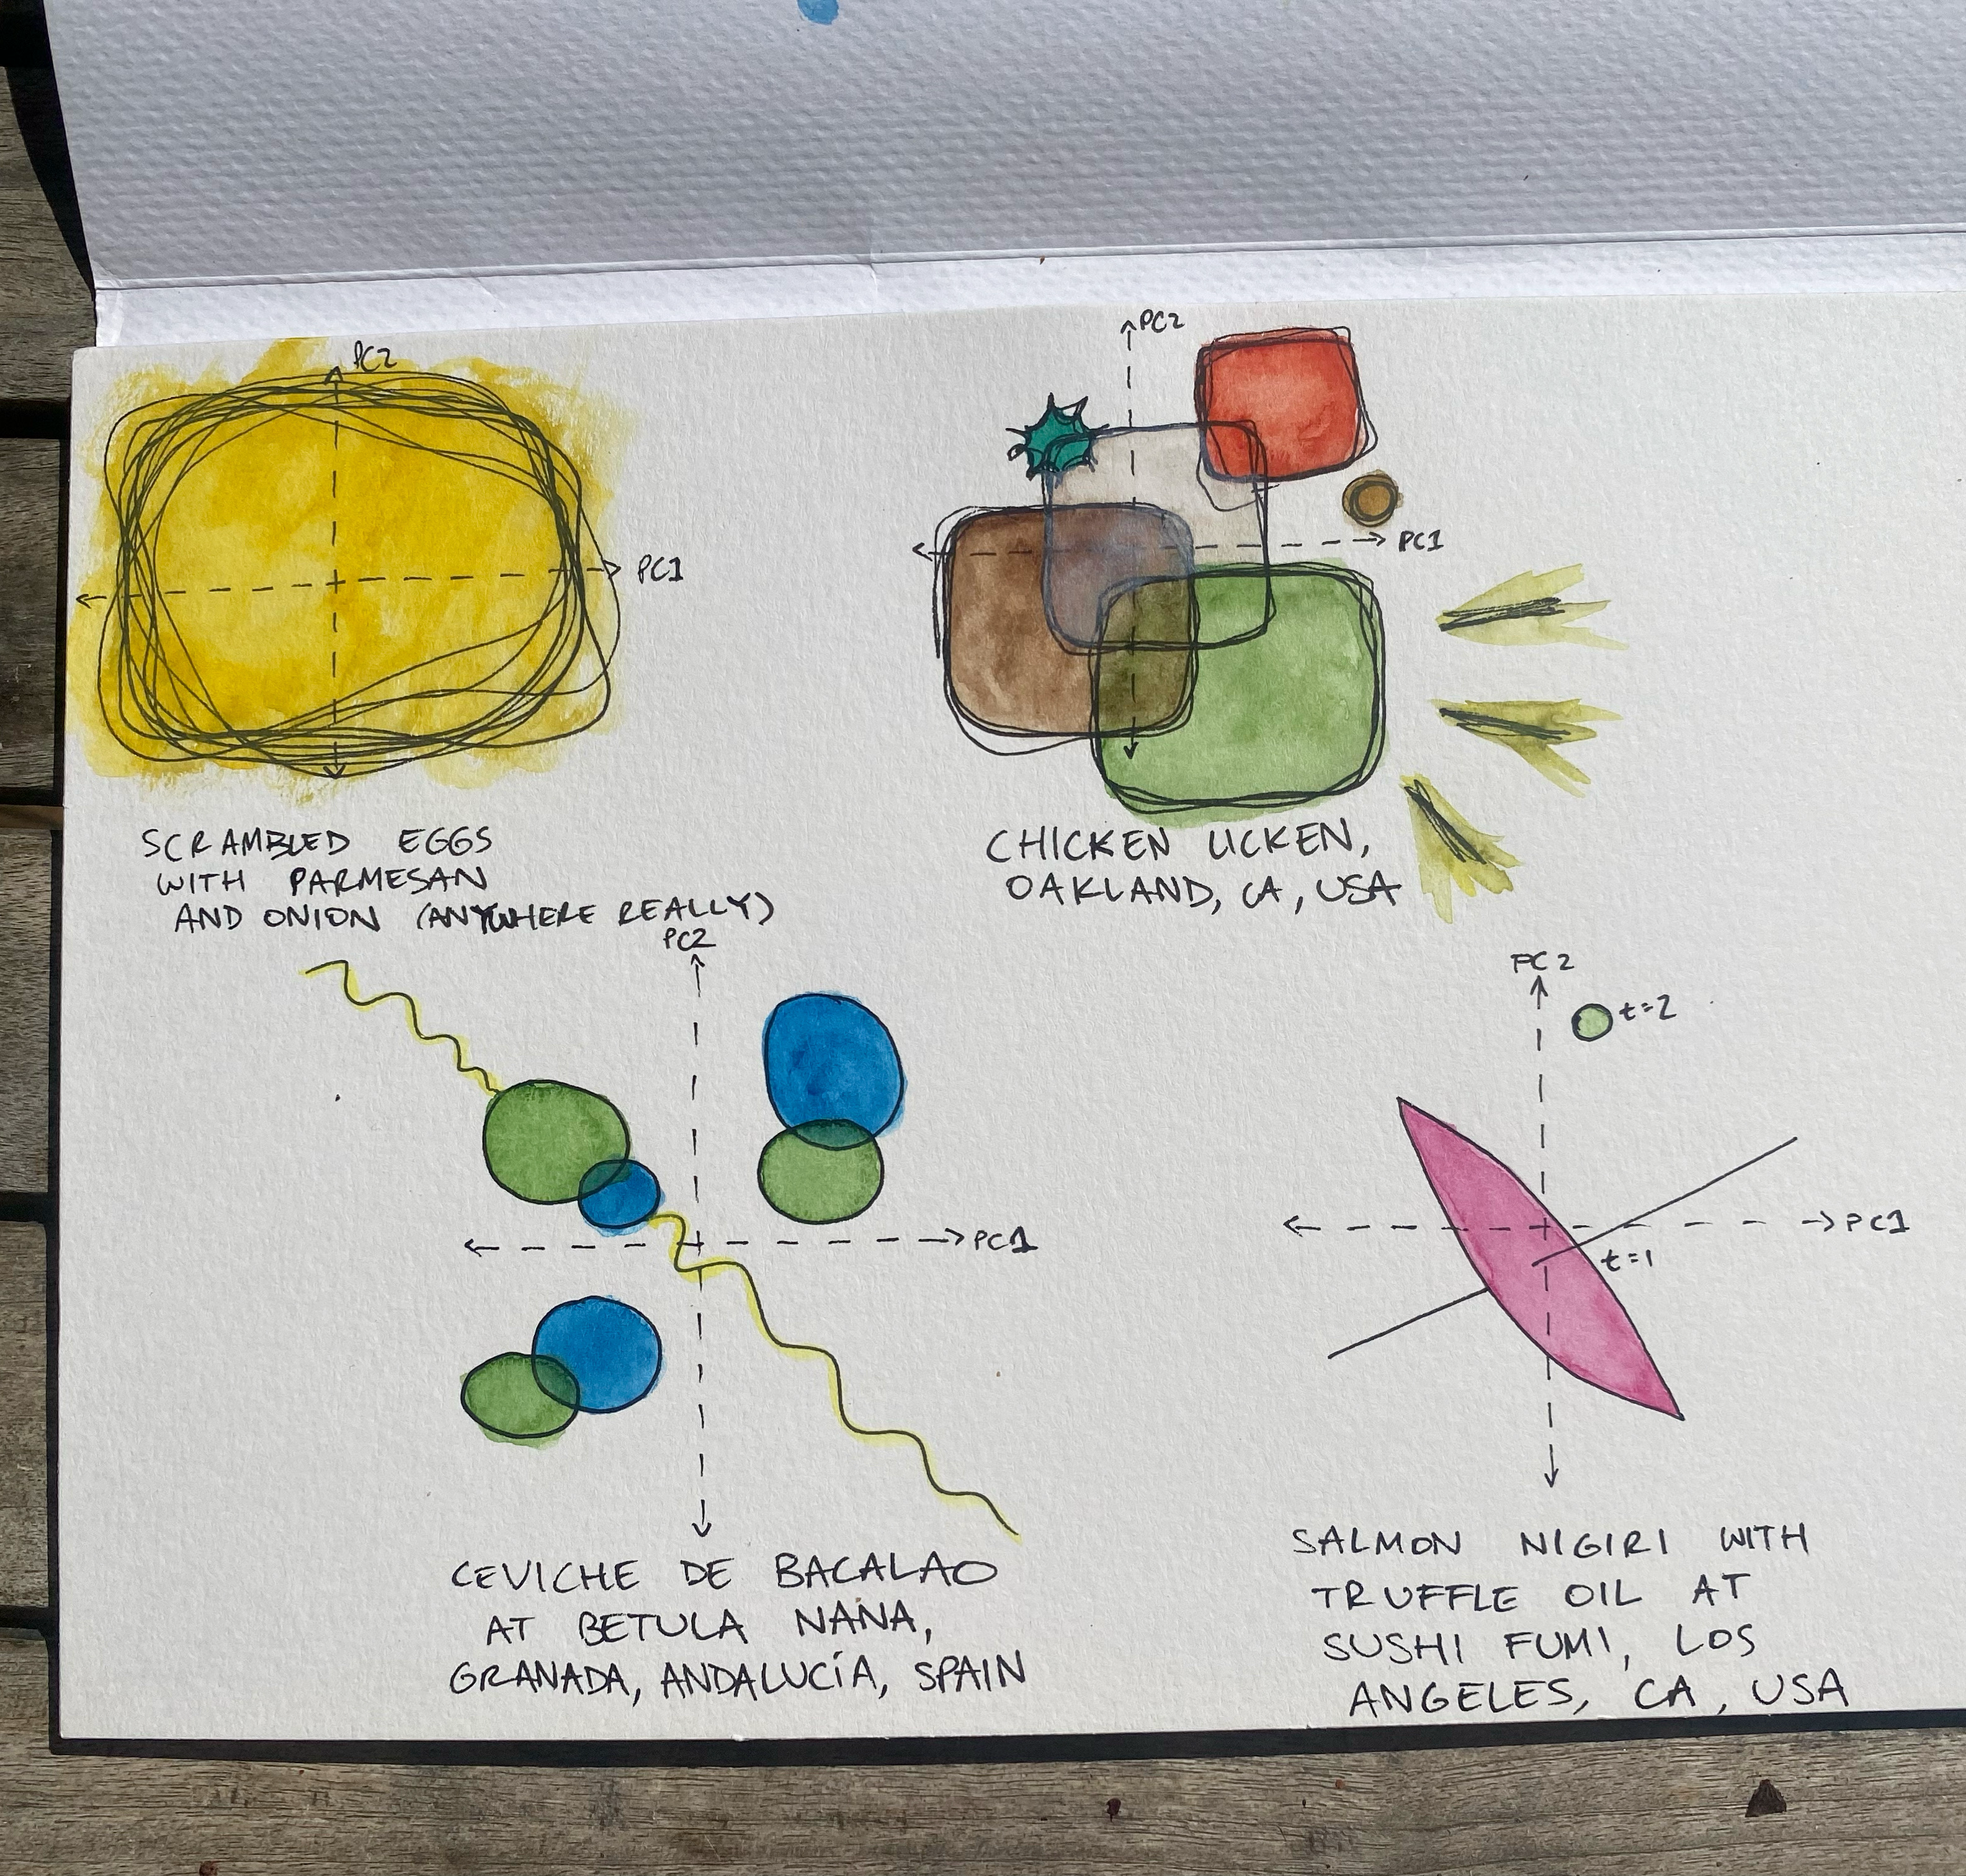 PC2
PC1
SCRAMBLED EGGS
WITH PARMESAN
AND ONION (ANYWHERE REALLY)
PC2
PC1
CHICKEN LICKEN,
OAKLAND, CA, USA
PC2
PC1
CEVICHE DE BACALAO
AT BETULA NANA,
GRANADA, ANDALUCÍA, SPAIN
PC2
t=2
PC1
t=1
SALMON NIGIRI WITH
TRUFFLE OIL AT
SUSHI FUMI, LOS
ANGELES, CA, USA